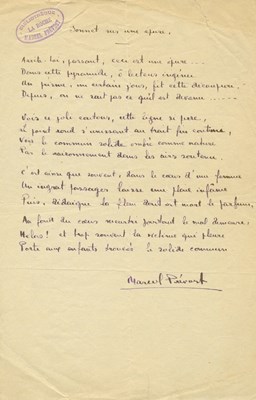 Sonnet sur une épure.
Arrête-toi, passant, ceci est une épure...
Dans cette pyramide, ô lecteur ingénu
Un prisme, un certain jour, fit cette découpure.
Depuis, on ne sait pas ce qu'il est devenu.....
Vois ce joli contour, cette ligne si pure,
Le point rond s'unissant au trait fin continu,
Vois le commun solide ombré comme nature
Par le raisonnement dans les airs soutenu.
C'est ainsi que souvent, dans le cœur d'une femme
Un ingrat passager laisse une plaie infâme
Puis, dédaigne la fleur dont est mort le parfum,
Au fond du cœur meurtri pourtant le mal demeure,
Hélas! et trop souvent la victime qui pleure
Porte aux enfants trouvés le solide commun
Marcel Prévost